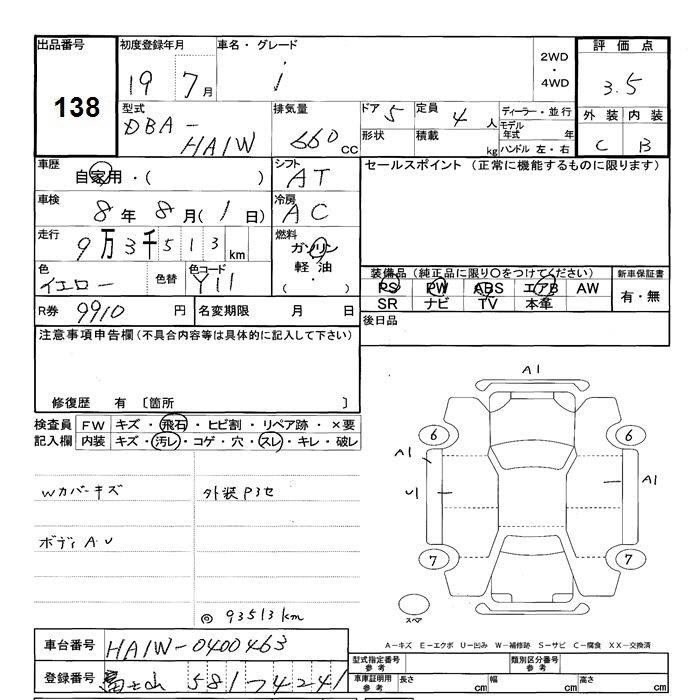 出品番号 初度登録年月 車名・グレード 2WD ・ 4WD 評価点
138 19 7月 i 3.5
型式 DBA- HA1W 排気量 660 CC ドア 5 定員 4 人 ディーラー・並行 外装 内装
形状 積載 kg モデル年式 年 ハンドル 左・右 C B
車歴 自家用・( ) シフト AT セールスポイント (正常に機能するものに限ります)
車検 8年 8月(1日) 冷房 AC
走行 9万3千513km 燃料 ガソリン 軽油 ( ・ )
色 イエロー 色替 色コード Y11 装備品 (純正品に限り〇をつけてください) 新車保証書
PS PW ABS エアB AW 有・無
SR ナビ TV 本革
R券 9910 円 名変期限 月 日 後日品
注意事項申告欄(不具合内容等は具体的に記入して下さい)
修復歴 有 〔箇所 〕
検査員 FW キズ・飛石・ヒビ割・リペア跡・×要
記入欄 内装 キズ・汚レ・コゲ・穴・スレ・キレ・破レ
A1
6 6
A1 A1
U1
7 7
スペア
Wカバーキズ 外装P3セ
ボディA.U
◎ 93513km
A-キズ E-エクボ U-凹み W-補修跡 S-サビ C-腐食 XX-交換済
車台番号 HA1W-0400463
型式指定番号 参考 類別区分番号 参考
登録番号 富士山 581 7 4241
車庫証明用 参考 長さ cm 幅 cm 高さ cm